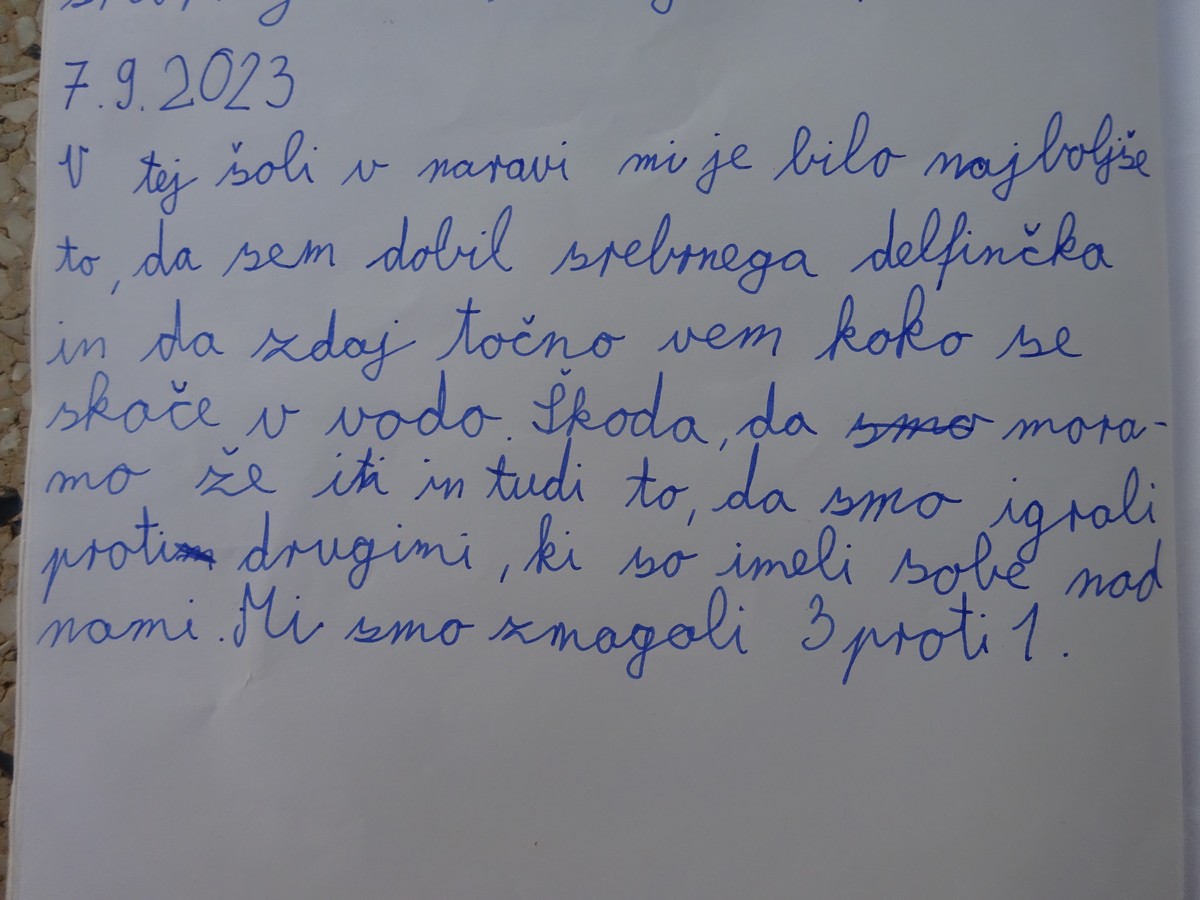 7.9.2023
V tej šoli v naravi mi je bilo najboljše
to, da sem dobil srebrnega delfinčka
in da zdaj točno vem kako se
skače v vodo. Škoda, da smo mora-
mo že iti in tudi to, da smo igrali
proti drugimi, ki so imeli sobe nad
nami. Mi smo zmagali 3 proti 1.